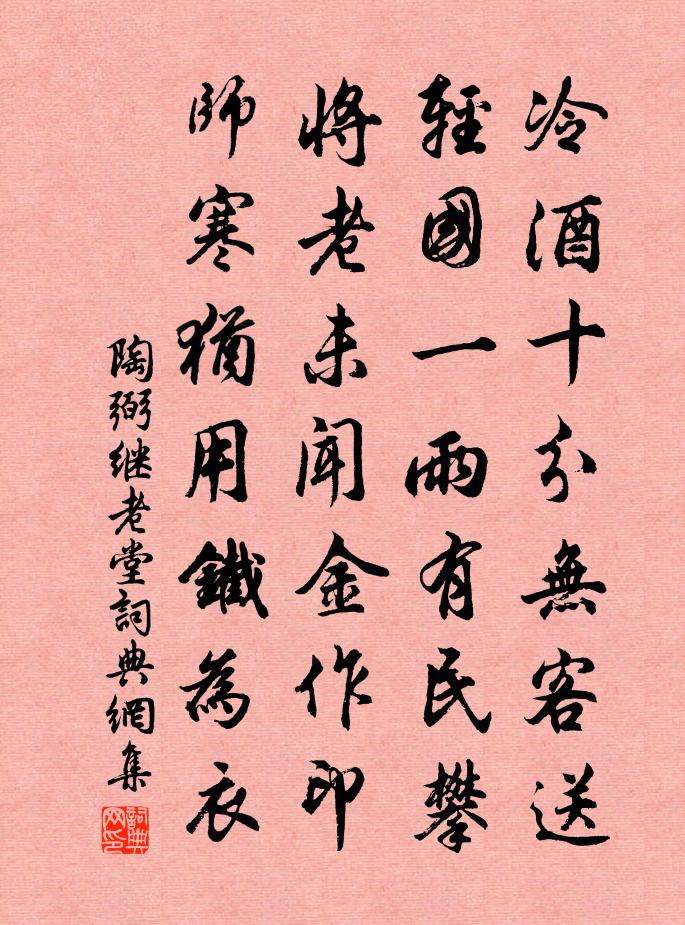 冷酒十分無客送
輕國一雨有民攀
將老未聞金作印
師寒猶用鐵為衣
陶弼继老堂詞典網集
詞典网印